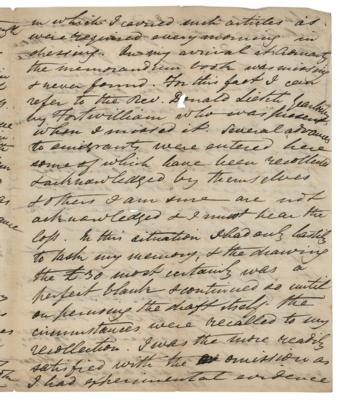 in which I carried such articles as
were required every morning in
dressing. On my arrival at
the memorandum book was missing
& never found. For this fact I can
refer to the Rev. Donald
by Fortwilliam who was present
when I missed it. Several advances
to emigrants were entered here
some of which have been recollected
& acknowledged by themselves
& others I am sure are not
acknowledged & I must bear the
loss. In this situation I had only hastily
to task my memory, & the drawing
the £30 most certainly was a
perfect blank & continued so until
on perusing the draft itself the
circumstances were recalled to my
recollection. I was the more readily
satisfied with the omission as
I had experimental evidence